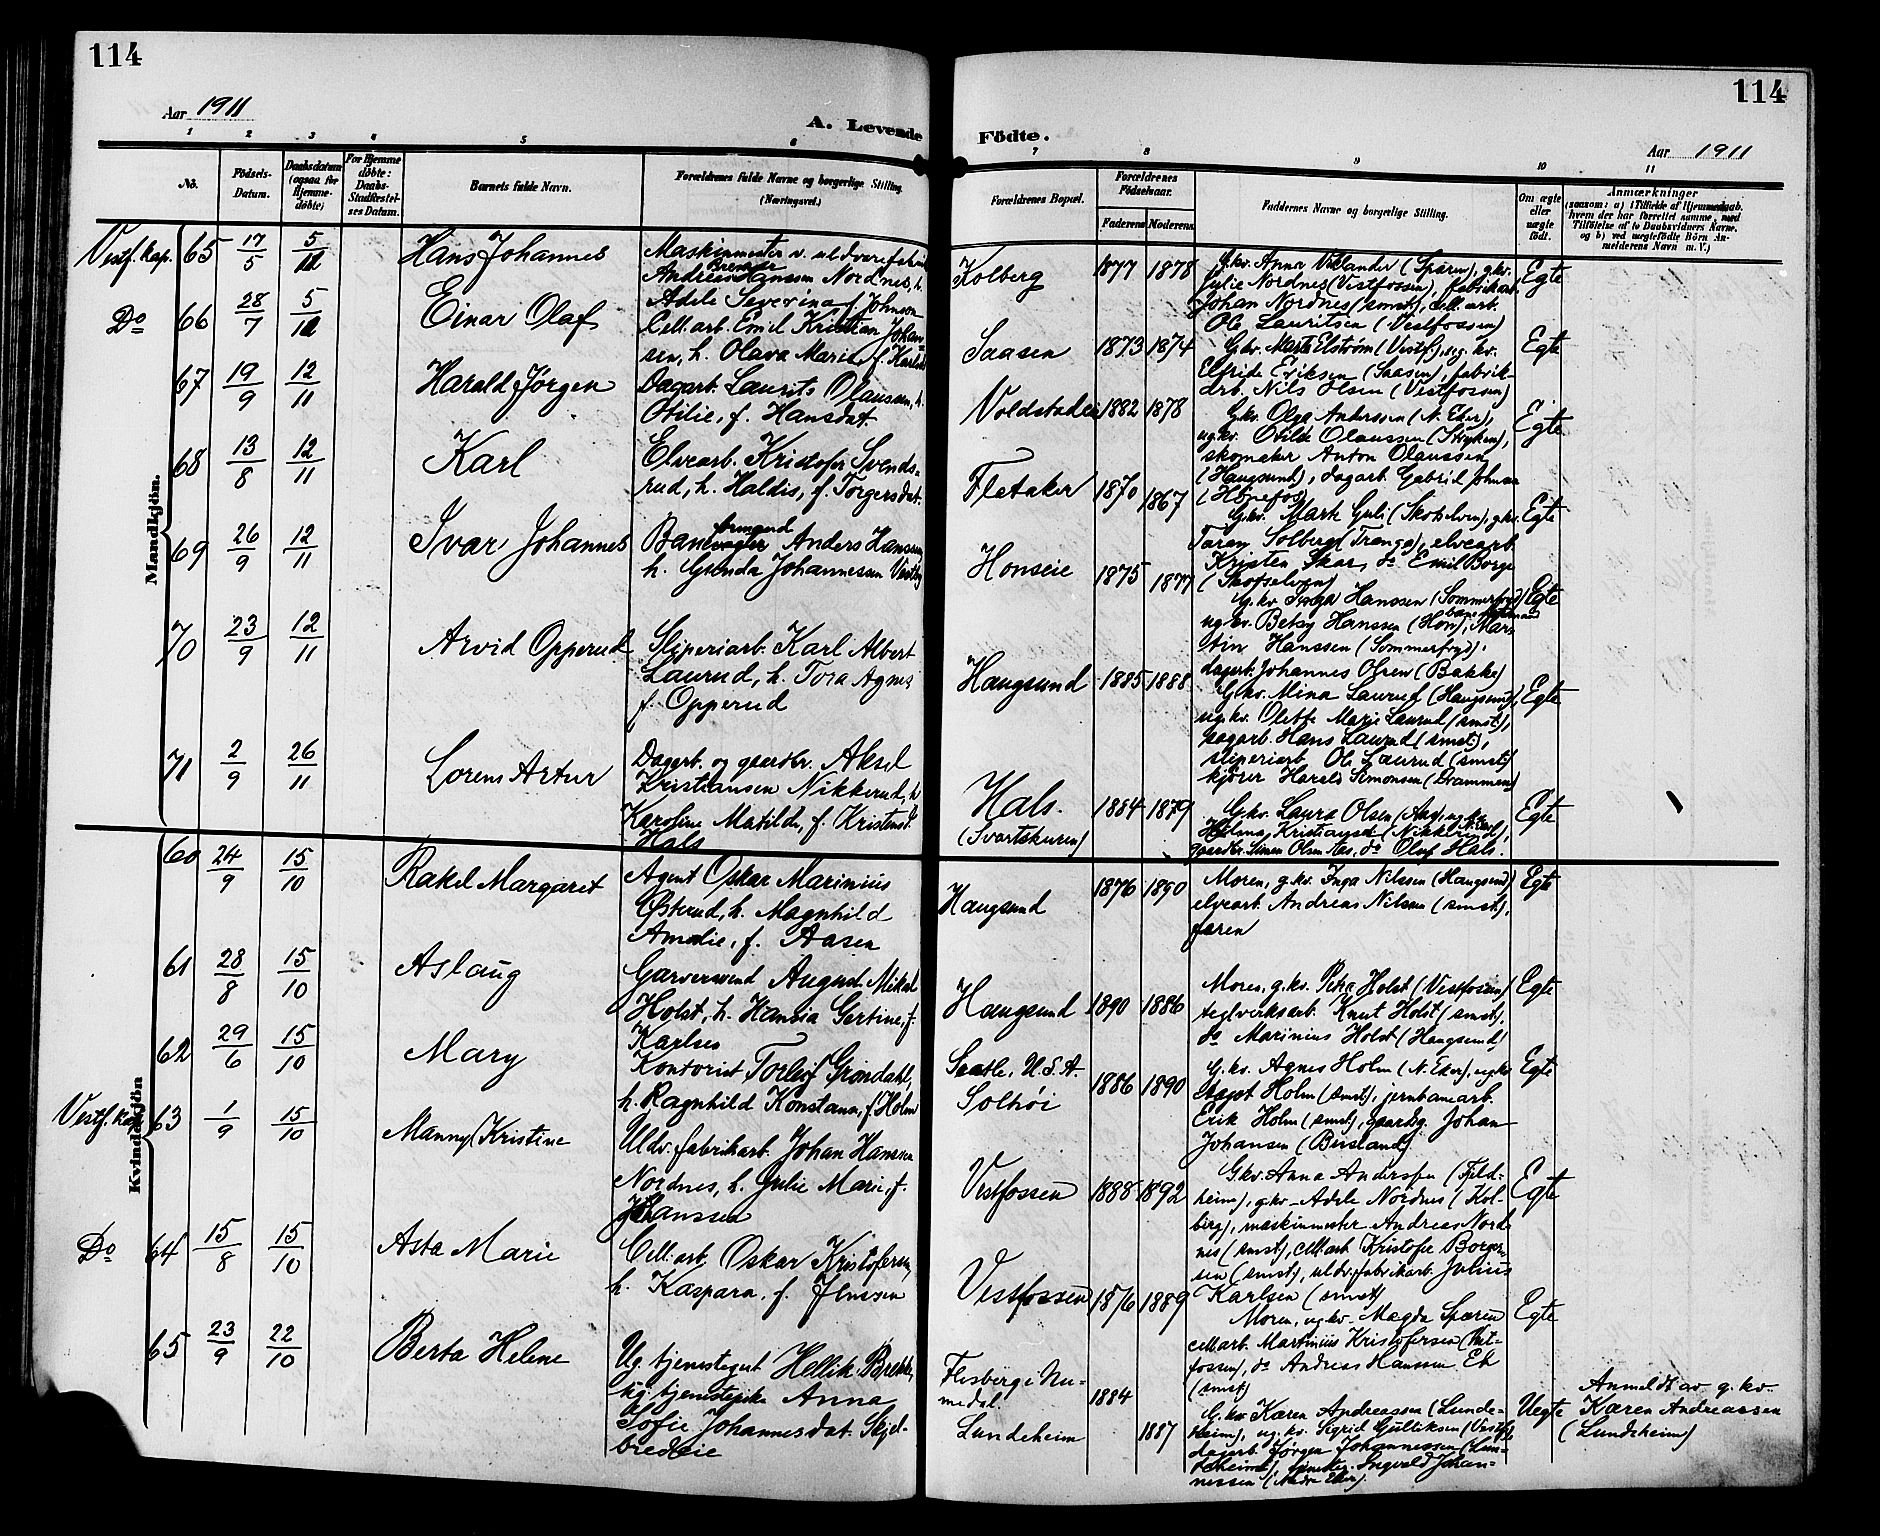 114
114
Aar 1911
A. Levende
Födte.
Aar 1911
1 2 3 4 5 6
7 8 9 10 11
No.
Födsels-
Datum.
Daabsdatum
(ogsaa for
Hjemme-
döbte)
For Hjemme
döbte:
Daabs-
Stadfæstel-
ses Datum.
Barnets fulde Navn.
Forældrenes fulde Navne og borgerlige Stilling.
(Næringsvei.)
Forældrenes Bopæl.
Forældrenes
Födselsaar.
Faderens
Moderens
Faddernes Navne og borgerlige Stilling.
Om ægte
eller
uægte
födt.
Anmærkninger
(saasom: a) i Tilfælde af Hjemmedaab,
hvem der har forrettet samme, med
Tilföielse af to Daabsvidners Navne,
og b) ved uægtefödte Börn An-
melderens Navn m. V.)
Mandkjön.
Vestf. kap. 65 17/5 5/11 Hans Johannes
Maskinmester v. uldvarefabrik
Nordnes, h.
Adele Severina f. Johnson
Kolberg 1877 1878
G.kv. Anna (Spæren), g.kv.
Julie Nordnes (Vestfossen), fabrikarb.
Johan Nordnes (smst), cell.arb.
Ole Lauritsen (Vestfossen)
Egte
Do 66 28/7 5/11 Einar Olaf
Cell.arb. Emil Kristian Johan-
sen, h. Olava Marie f. Karlsd.
Saasen 1873 1874
G.kv. Marte Elstrøm (Vestf), ug. kv.
Elfride Eriksen (Saasen), fabrik-
arb. Nils Olsen (Vestfossen)
Egte
67 19/9 12/11 Harald Jørgen
Dagarb. Laurits Olaussen, h.
Otilie, f. Hansdat
Voldstadei 1882 1878
G.kv. Olga Anderssen (N. Eker),
ug.kv. Otilde Olaussen (Stryken),
skomaker Anton Olaussen
(Haugsund), dagarb. Gabriel Johnsen
(Hönefos)
Egte
68 13/8 12/11 Karl
Elvearb. Kristofer Svends-
rud, h. Haldis, f. Torgersdat.
Fletaker 1870 1867
G.kv. Mark Guli (Skotselven), g.kv.
Taran Solberg (Tranga), elvearb.
Kristen Skar, do Emil Borge
(Skotselven)
Egte
69 26/9 12/11 Ivar Johannes
formand
Banevogter Anders Hanssen
h. Gunda Johannessen Vestby
Honseie 1875 1877
G.kv. Inga Hanssen (Sommerfryd)
ug.kv. Betsy Hanssen (Hon), Mar-
tin Hanssen (Sommerfryd),
dagarb. Johannes Olsen (Bakke)
Egte
70 23/9 12/11 Arvid Opperud
Sliperiarb. Karl Albert
Laurud, h. Tora Agnes
f. Opperud
Haugsund 1885 1888
G.kv. Mina Laurud (Haugsund),
ug.kv. Olette Marie Laurud (smst),
sagarb. Hans Laurud (smst),
sliperiarb. Ole Laurud (smst)
kjører Harald Simonsen (Drammen)
Egte
71 2/9 26/11 Lorens Artur
Dagarb. og gaardbr. Aksel
Kristiansen Nikkerud, h.
Karoline Matilde, f. Kristensd.
Hals
Hals.
(Svartskuren)
1884 1879
G.kv. Laura Olsen (Aas), ug.kv.
Helma Kristiansen (Nikkerud),
gaardbr. Simen Olsen Aas, do Oluf Hals.
Egte
Kvindekjön
60 24/9 15/10 Rakel Margaret
Agent Oskar Marinius
Østerud, h. Magnhild
Amalie, f. Aasen
Haugsund 1876 1890
Moren, g.kv. Inga Nilssen (Haugsund),
elvearb. Andreas Nilsen (smst),
faren
Egte
61 28/8 15/10 Aslaug
Garversvend August Mikal
Holst, h. Hansia Gertine, f.
Karlsen
Haugsund 1890 1886
Moren, g.kv. Petra Holst (Vestfossen)
teglverksarb. Knut Holst (smst),
do Marinius Holst (Haugsund)
Egte
62 29/6 15/10 Mary
Kontorist Torleif Grøndahl,
h. Ragnhild Konstanse, f. Holm
Seatle, U.S.A.
Solhöi
1886 1890
G.kv. Agnes Holm (N. Eker), ug.kv.
Aagot Holm (smst), jernbanearb.
Erik Holm (smst), gaardsg. Johan
Johansen (Bersland)
Egte
Vestf. kap. 63 1/9 15/10 Manny Kristine
Uldv. fabrikarb. Johan Hanssen
Nordnes, h. Julie Marie, f.
Hanssen
Vestfossen 1888 1892
G.kv. Anna Anderssen (Fjeld-
heim), g.kv. Adele Nordnes (Kol-
berg), maskinmester Andreas Nord-
nes (smst), cell.arb Kristofer Borger-
sen (smst), uldv.fabrikarb. Julius
Karlsen (smst)
Egte
Do 64 15/8 15/10 Asta Marie
Cell.arb. Oskar Kristofersen,
h. Kaspara, f. Jenssen
Vestfossen 1876 1889
Moren, ug.kv. Magda Spæren
cell.arb. Martinius Kristofersen (Vest-
fossen), do Andreas Hanssen Ek
(smst)
Egte
65 23/9 22/10 Berta Helene
Ug. tjenestegut Hellik Brekke,
ug. tjenestepike Anna
Sofie Johannesdat. Skjel-
bredeie
Flesberg i Nu-
medal.
Lundeheim
1884
1887
G.kv. Karen Andreassen (Lunde-
heim), ug. kv. Sigrid Gulliksen (Vestf),
dagarb. Jørgen Johannessen (Lun-
deheim), Ingvald Johan-
nessen (Nedre Eker).
Uegte
Anmeldt av g.kv.
Karen Andreassen
(Lundeheim)